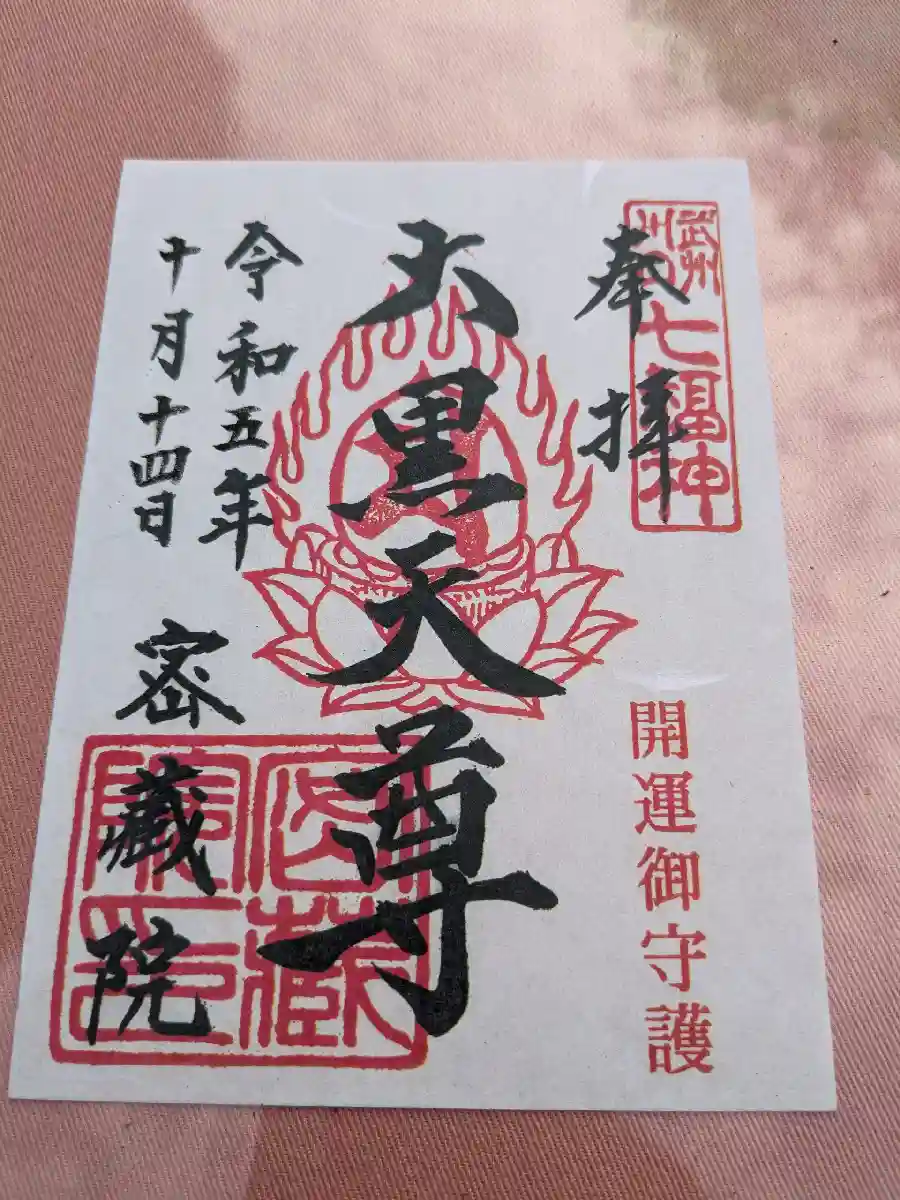 武州川口七福神
奉拝
開運御守護
大黒天尊
令和五年
十月十四日
密蔵院
密蔵院印